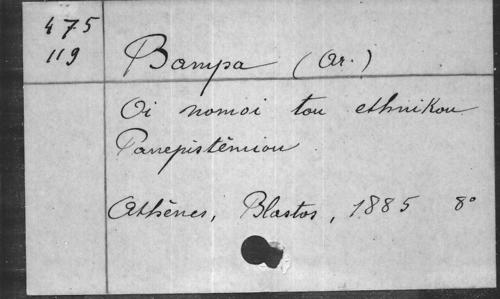 475
119
Bampa (Ar.)
Oi nomoi tou ethnikou
Panepistēmiou.
Athènes, Blastos, 1885 8°